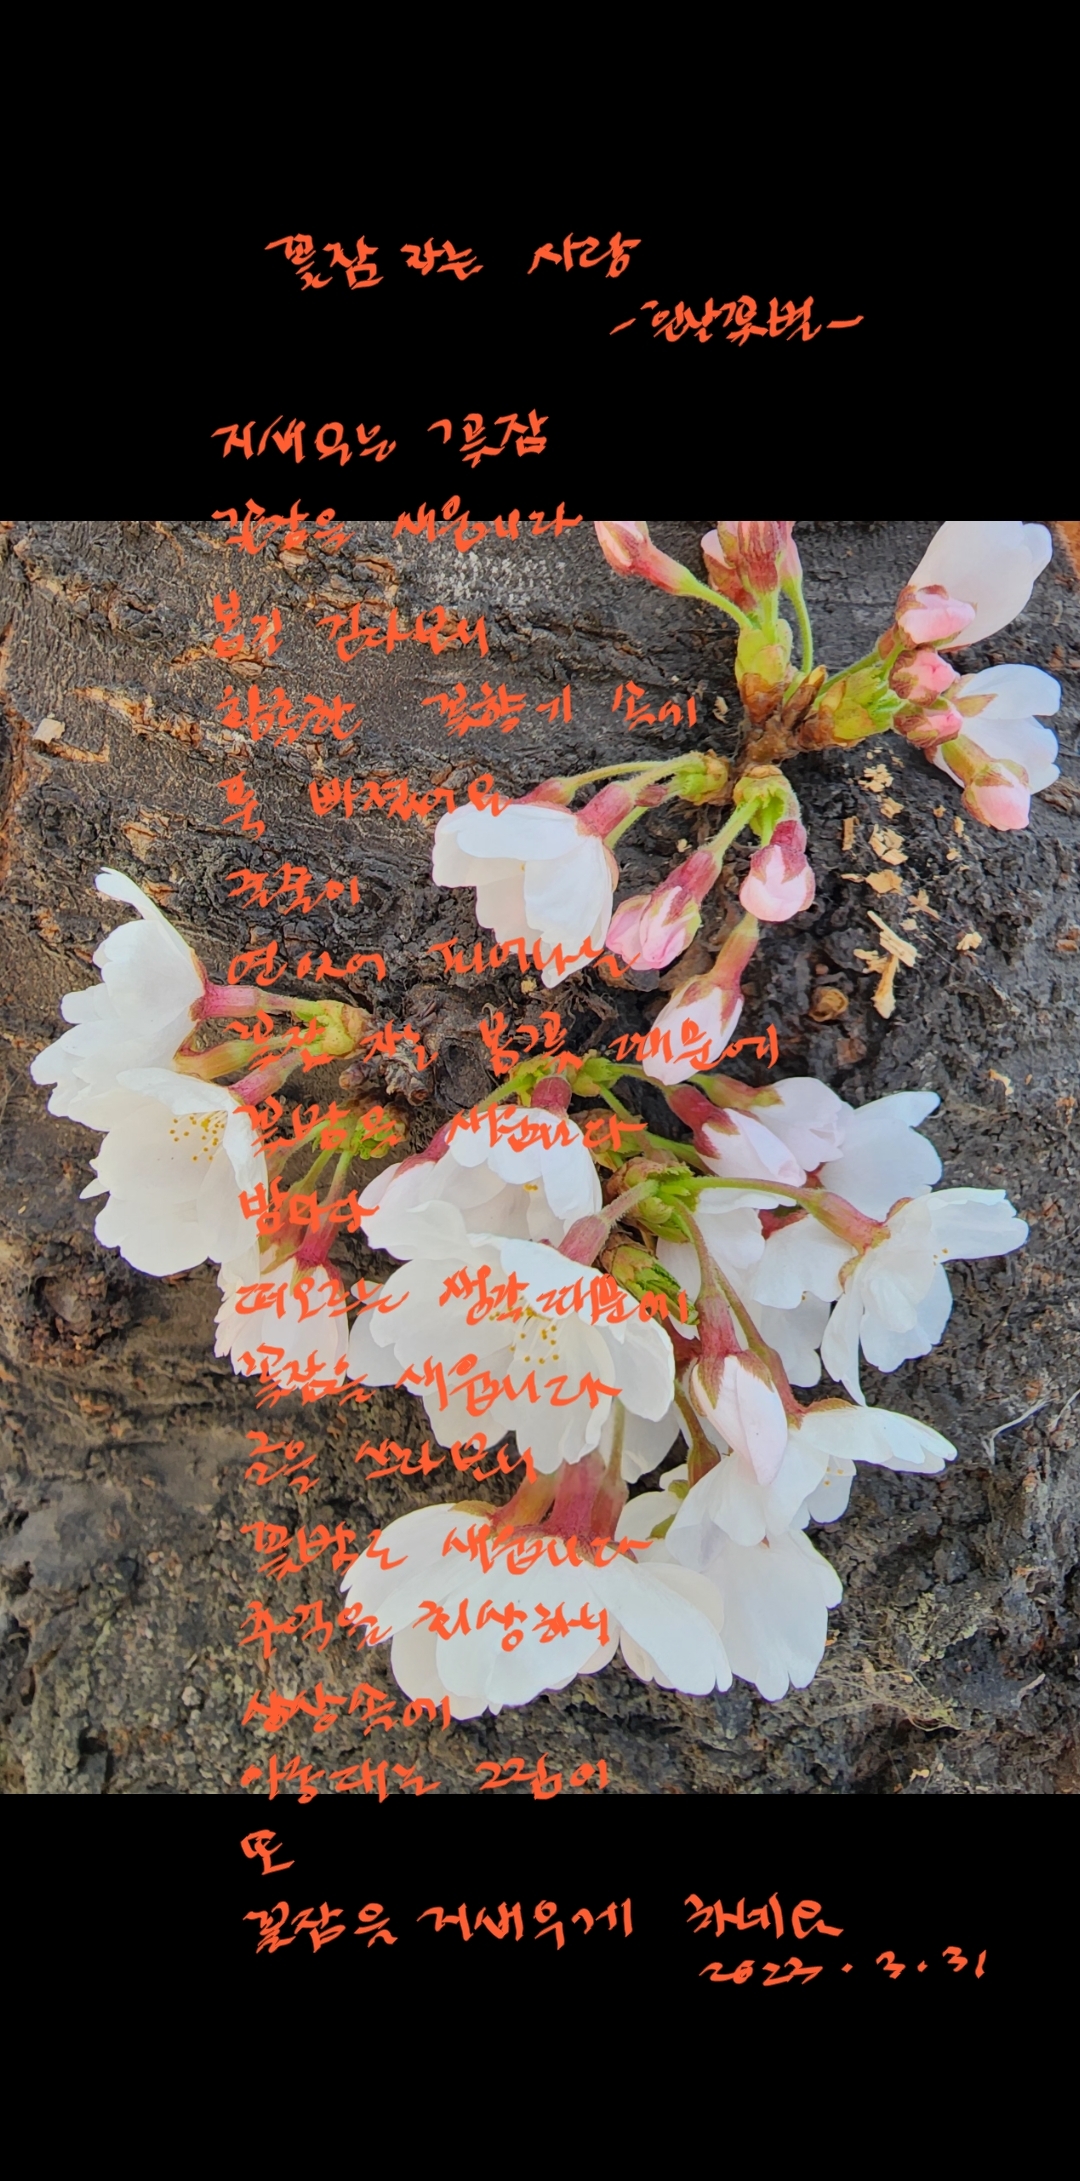 꽃잠 자는 사랑
지새우는 꽃잠
꽃잠을 새웁니다
봄길 걷다보니
향긋한 꽃향기 속에
푹 빠졌어요
촉촉이
연이어 피어나는
꽃잠 자는 봄꽃 때문에
꽃밤을 새웁니다
밤마다
떠오르는 생각 때문에
꽃잠을 새웁니다
글을 쓰다보니
꽃밤도 새웁니다
추억을 회상하니
상상속에
아롱대는 그림이
또
꽃잠을 지새우게 하네요
2023.3.31